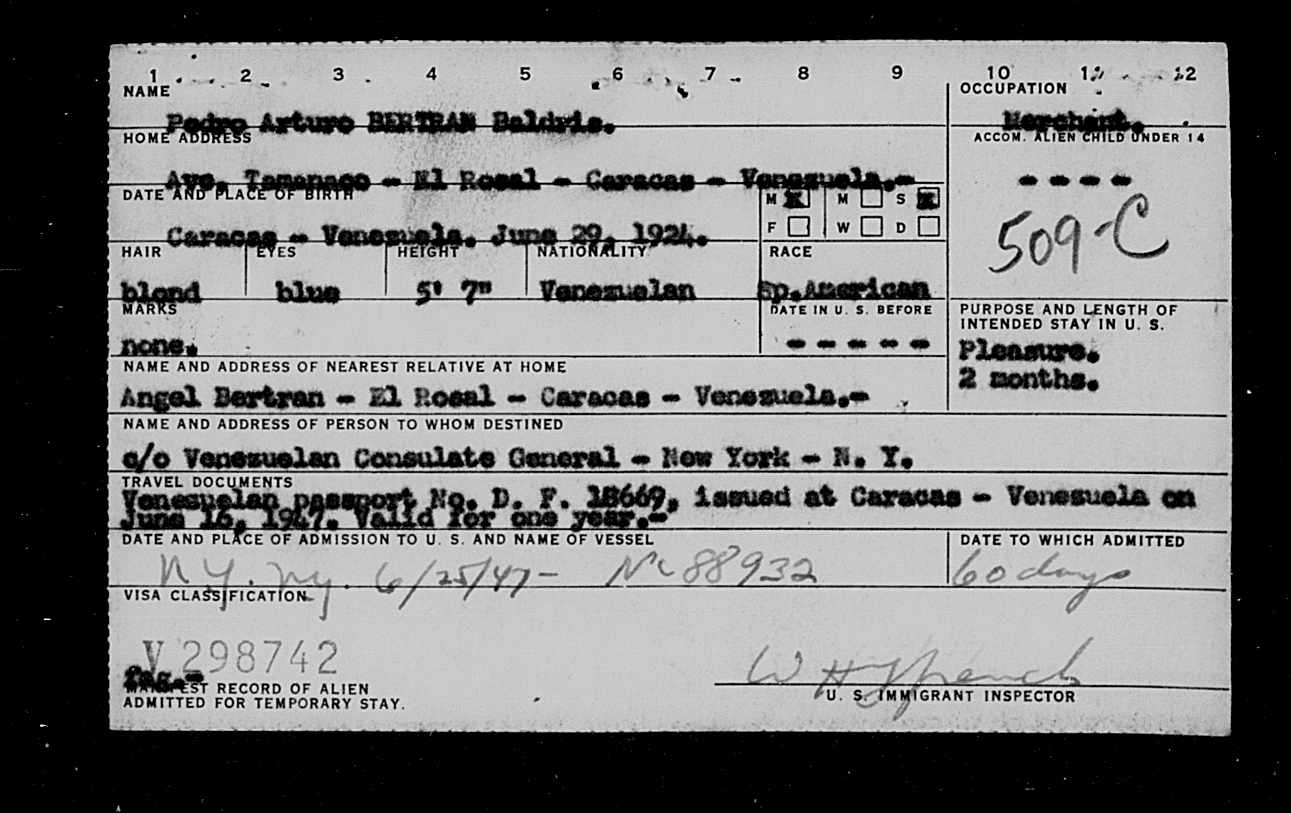 1 2 3 4 5 6 7 8 9 10 11 12
NAME
OCCUPATION
Pedro Arturo BERTRAN Baldris.
Merchant.
HOME ADDRESS
ACCOM. ALIEN CHILD UNDER 14
Ave. Tamanaco - El Rosal - Caracas - Venezuela.-
- - - -
DATE AND PLACE OF BIRTH
M X M S X
F W D
Caracas - Venezuela. June 29, 1924.
509-C
HAIR EYES HEIGHT NATIONALITY RACE
blond blue 5' 7" Venezuelan Sp.American
MARKS
DATE IN U. S. BEFORE
PURPOSE AND LENGTH OF
INTENDED STAY IN U. S.
none.
- - - - -
Pleasure.
2 months.
NAME AND ADDRESS OF NEAREST RELATIVE AT HOME
Angel Bertran - El Rosal - Caracas - Venezuela.-
NAME AND ADDRESS OF PERSON TO WHOM DESTINED
c/o Venezuelan Consulate General - New York - N. Y.
TRAVEL DOCUMENTS
Venezuelan passport No. D. F. 18669, issued at Caracas - Venezuela on
June 16, 1947. Valid for one year.-
DATE AND PLACE OF ADMISSION TO U. S. AND NAME OF VESSEL
DATE TO WHICH ADMITTED
N.Y. N.Y. 6/25/47- NC 88932
60 days
VISA CLASSIFICATION
V 298742
fag.-
MANIFEST RECORD OF ALIEN
ADMITTED FOR TEMPORARY STAY.
U. S. IMMIGRANT INSPECTOR